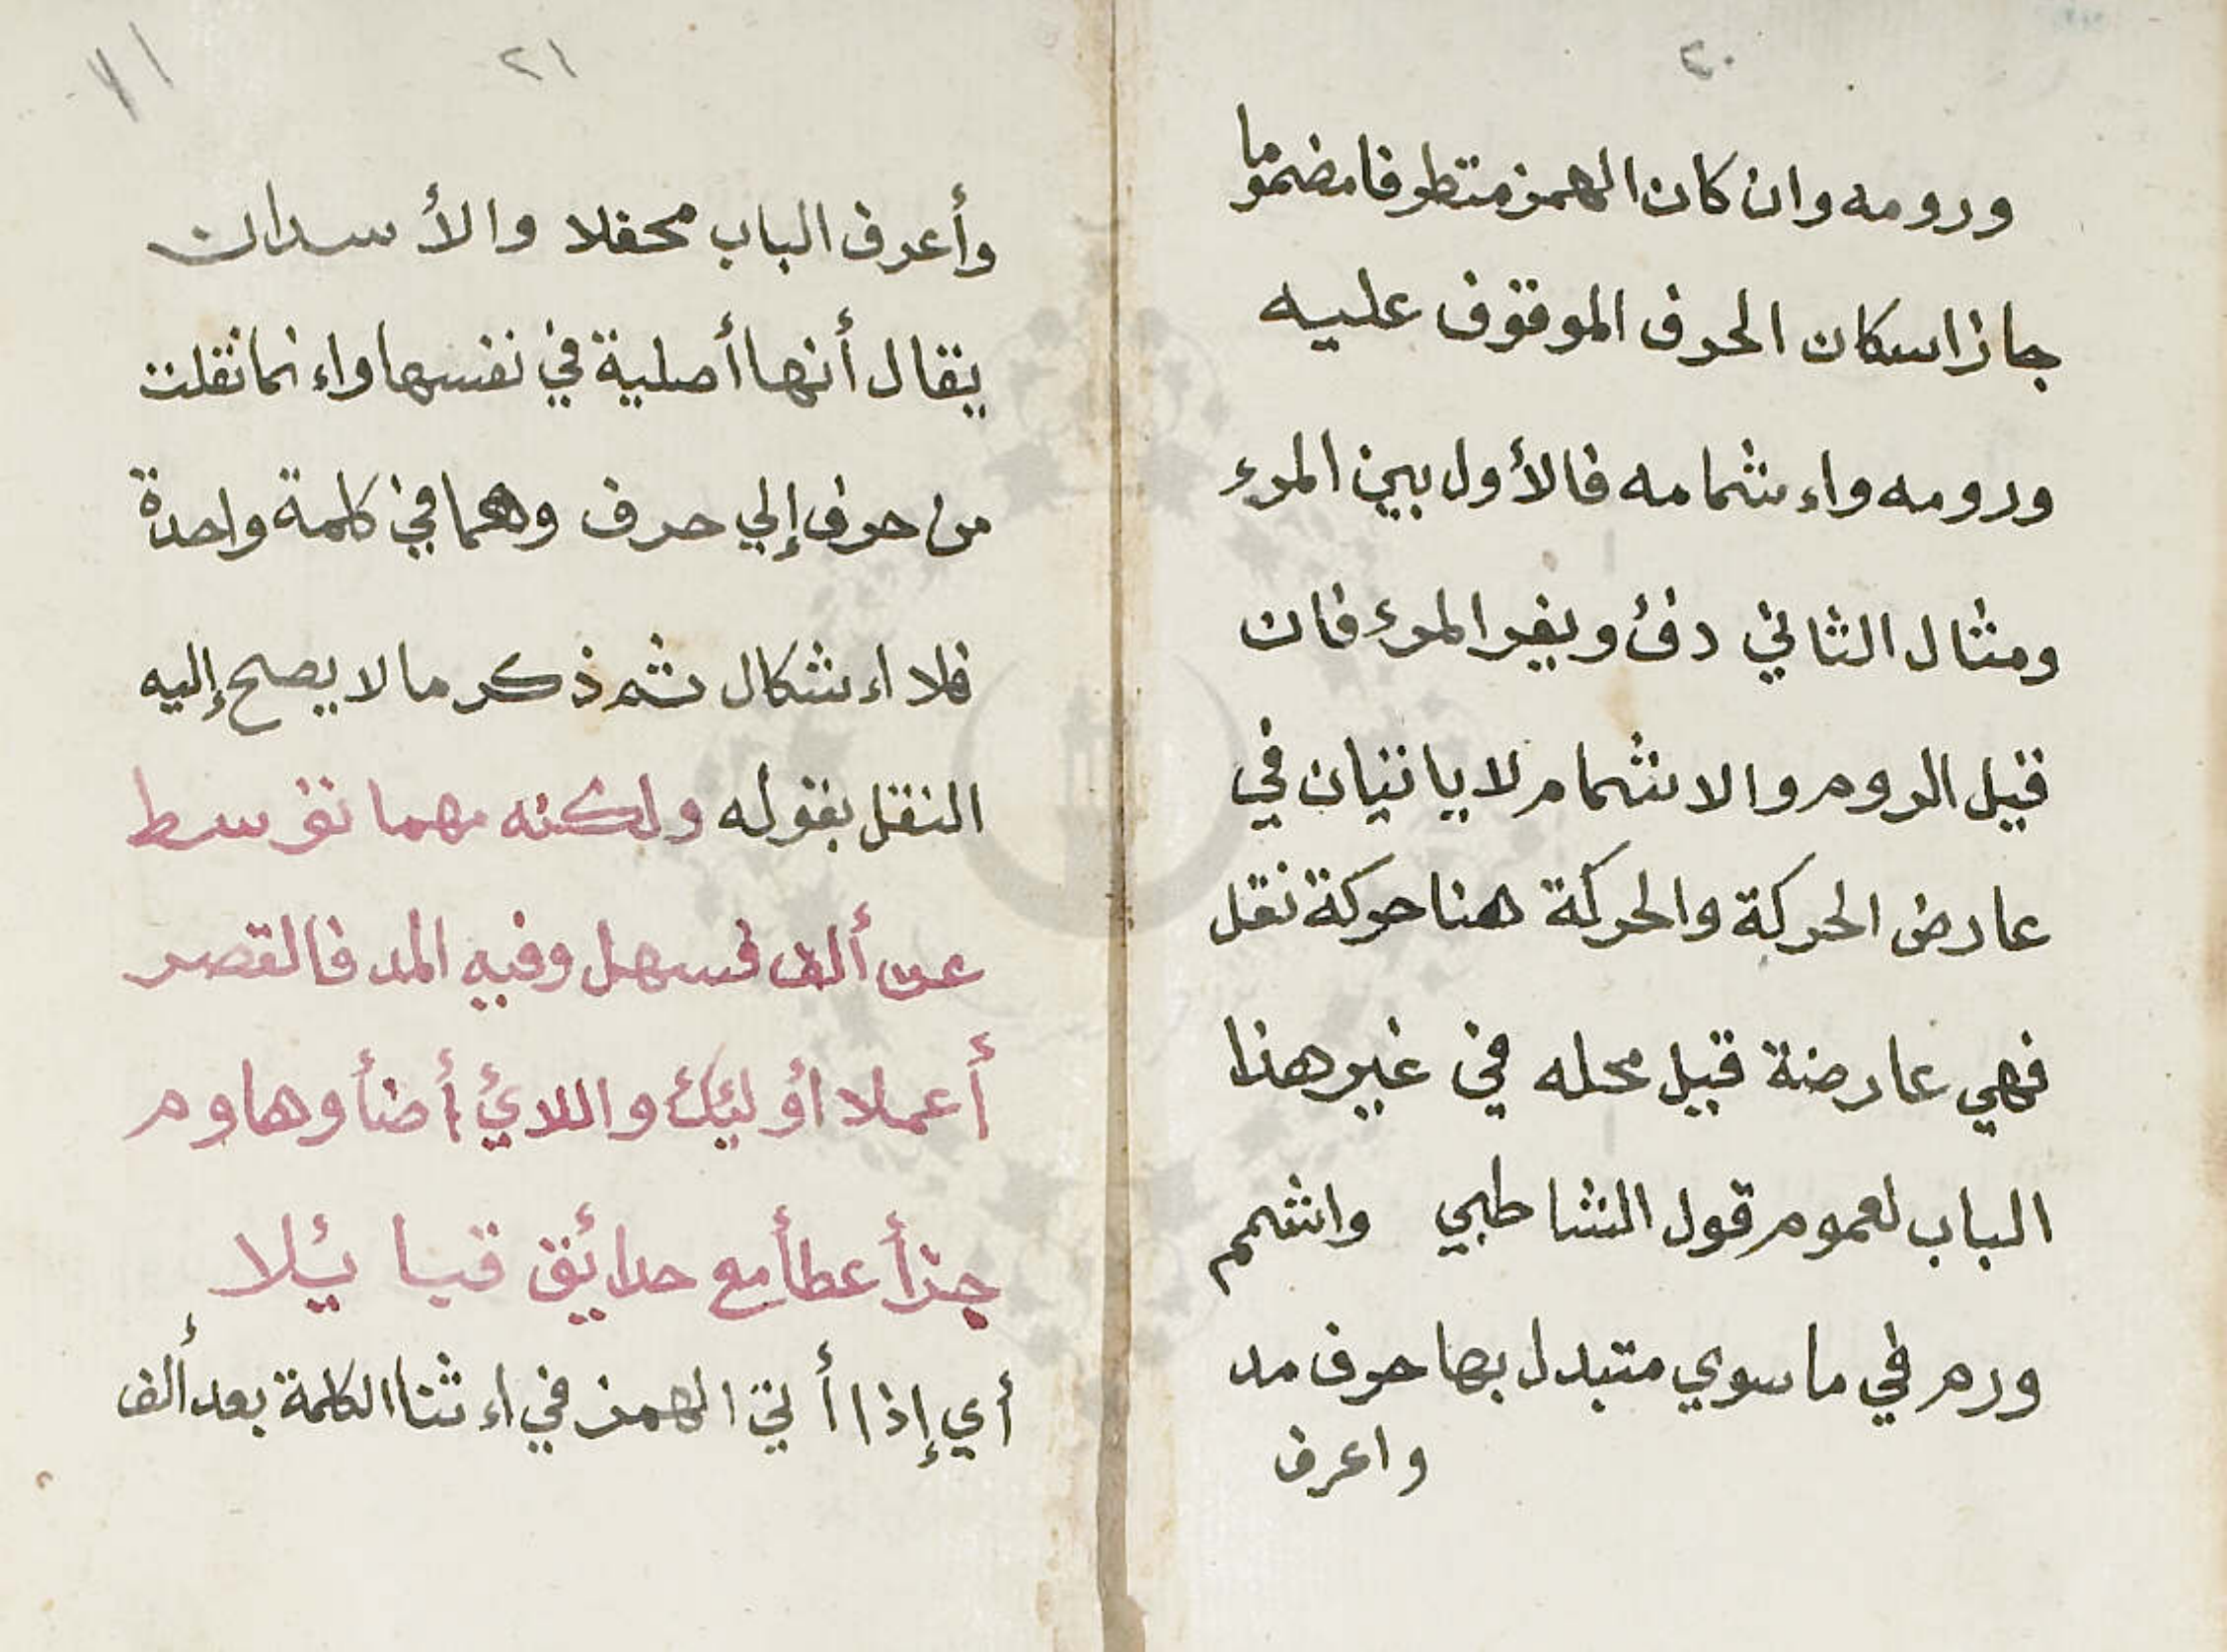 ٢٠
ورومه وان كان الهمز متطرفا مضموما
جاز اسكان الحرف الموقوف عليه
ورومه واءشمامه فالأول بين المرء
ومثال الثاني دفئ ويفر المرء فان
قيل الروم والاشمام لا ياتيان في
عارض الحركة والحركة هنا حركة نقل
فهي عارضة قيل محله في غير هذا
الباب لعموم قول الشاطبي واشمم
ورم في ما سوي متبدل بها حرف مد
واعرف
٢١
وأعرف الباب محفلا والأسدان
يقال أنها أصلية في نفسها واءنما نقلت
من حرف إلي حرف وهما في كلمة واحدة
فلا اءشكال ثم ذكر ما لا يصح إليه
النقل بقوله ولكنه مهما توسط
عن ألف فسهل وفيه المد فالقصر
أعملا اؤليئك واللائي أضأ وهاوم
جزأ عطأ مع حدائيق قيا يئلا
أي إذا أتي الهمز في اءثنا الكلمة بعد ألف